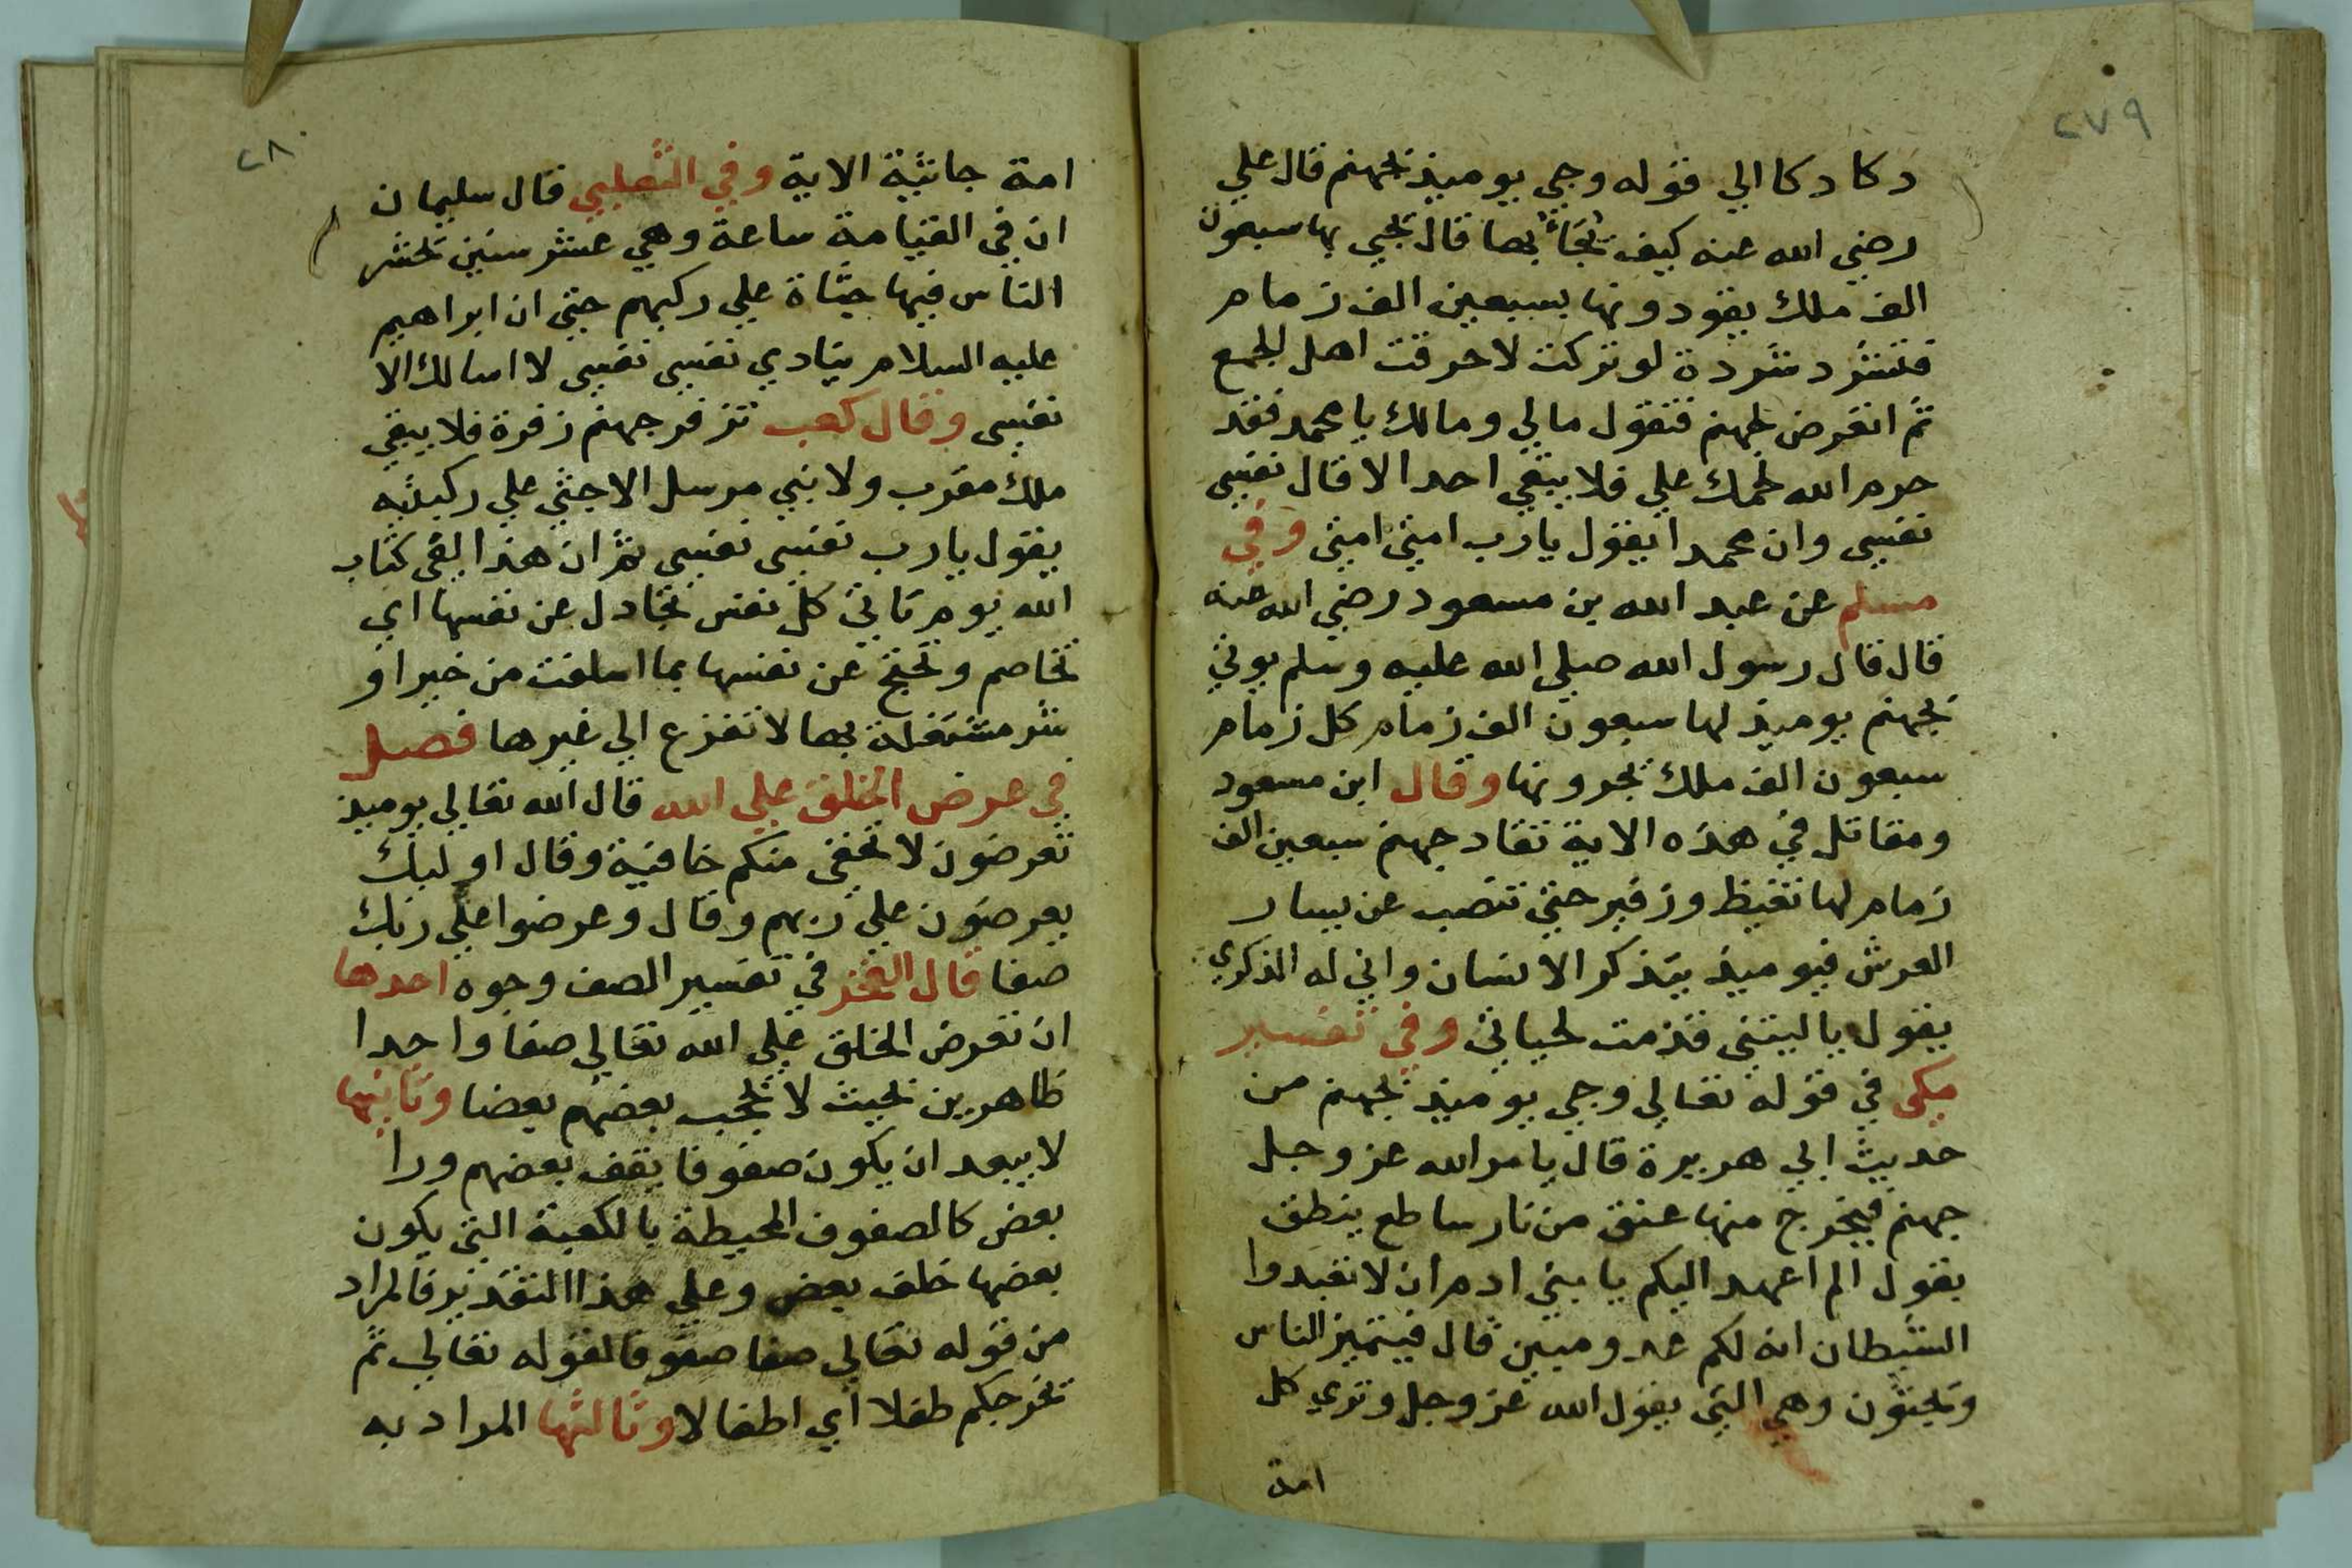 ٢٧٩
دكا دكا الي قوله وجي يوميذ بجهنم قال علي
رضي الله عنه كيف يُجَاءُ بها قال تجي بها سبعون
الف ملك يقودونها بسبعين الف زمام
فتشرد شردة لو تركت لاحرقت اهل الجمع
ثم اتعرض لجهنم فتقول مالي ومالك يا محمد فقد
حرم الله لحمك علي فلا يبقي احد الا قال نفسي
نفسي وان محمدا يقول يا رب امتي امتي وفي
مسلم عن عبد الله بن مسعود رضي الله عنه
قال قال رسول الله صلي الله عليه وسلم يوتي
بجهنم يوميذ لها سبعون الف زمام كل زمام
سبعون الف ملك يجرونها وقال ابن مسعود
ومقاتل في هذه الاية تقاد جهنم سبعين الف
زمام لها تغيظ وزفير حتي تنصب عن يسار
العرش فيوميذ يتذكر الانسان واني له الذكري
يقول يا ليتني قدمت لحياتي وفي تفسير
مكي في قوله تعالي وجي يوميذ بجهنم من
حديث ابي هريرة قال يامر الله عز وجل
جهنم فيخرج منها عنق من نار ساطع ينطق
يقول الم اعهد اليكم يا بني ادم ان لا تعبدوا
الشيطان انه لكم عدو مبين قال فيتميز الناس
ويجثون وهي التي يقول الله عز وجل وتري كل
امة
٢٨٠
امة جاثية الاية وفي الثعلبي قال سليمان
ان في القيامة ساعة وهي عشر سنين تحشر
الناس فيها جثاة علي ركبهم حتي ان ابراهيم
عليه السلام ينادي نفسي نفسي لا اسالك الا
نفسي وقال كعب تزفر جهنم زفرة فلا يبقي
ملك مقرب ولا نبي مرسل الا جثي علي ركبتيه
يقول يا رب نفسي نفسي ثم ان هذا لفي كتاب
الله يوم تاتي كل نفس تجادل عن نفسها اي
تخاصم وتحتج عن نفسها بما اسلفت من خير او
شر مشتغلة بها لا تفزع الي غيرها فصل
في عرض الخلق علي الله قال الله تعالي يوميذ
تعرضون لا تخفي منكم خافية وقال اوليك
يعرضون علي ربهم وقال وعرضوا علي ربك
صفا قال الفخر في تفسير الصف وجوه احدها
ان تعرض الخلق علي الله تعالي صفا واحدا
ظاهرين بحيث لا يحجب بعضهم بعضا وثانيها
لا يبعد ان يكون صفوفا يقف بعضهم ورا
بعض كالصفوف المحيطة بالكعبة التي يكون
بعضها خلف بعض وعلي هذا التقدير فالمراد
من قوله تعالي صفا صفوفا لقوله تعالي ثم
نخرجكم طفلا اي اطفالا وثالثها المراد به